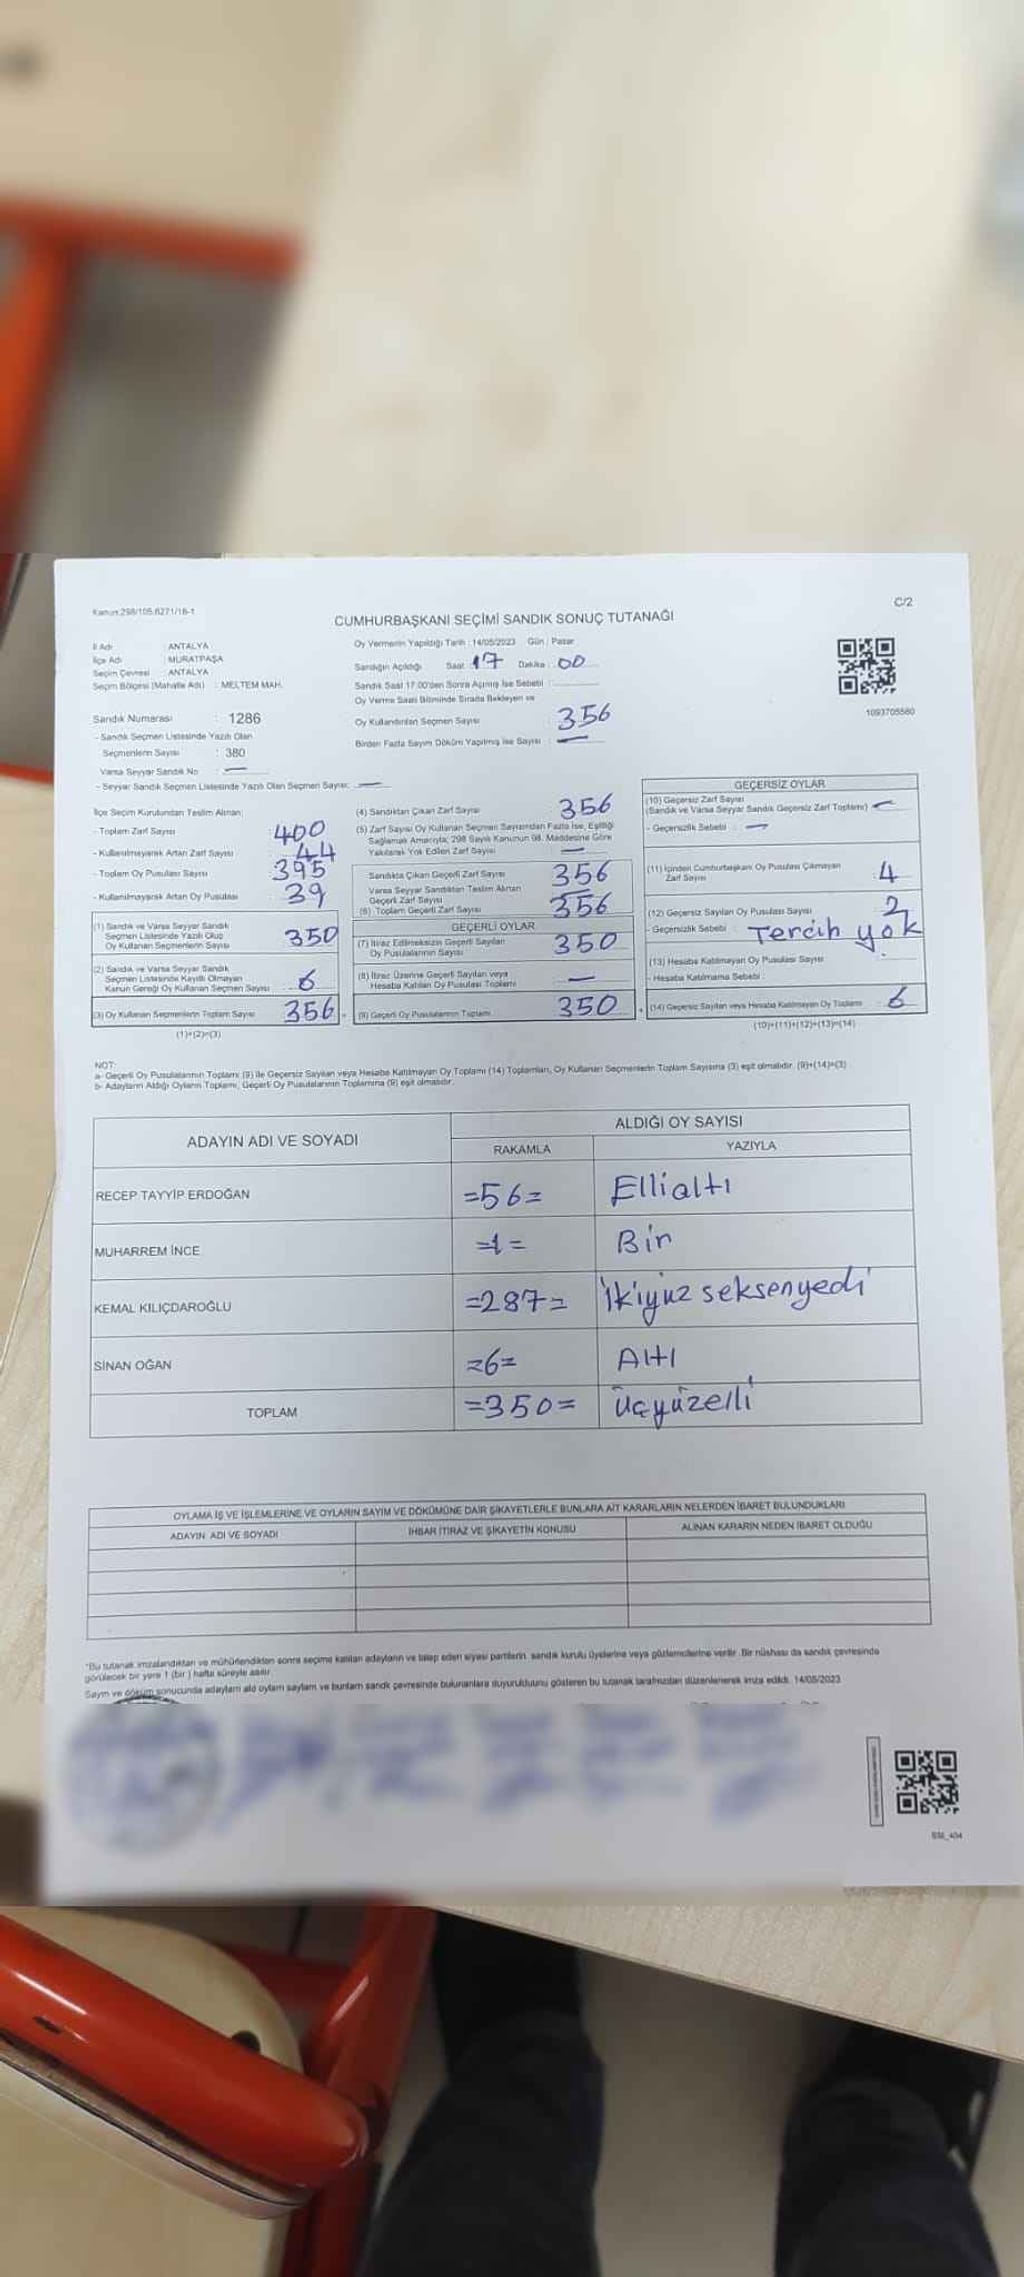 Kanun:298/105,6271/16-1
C/2
CUMHURBAŞKANI SEÇİMİ SANDIK SONUÇ TUTANAĞI
İl Adı : ANTALYA
İlçe Adı : MURATPAŞA
Seçim Çevresi : ANTALYA
Seçim Bölgesi (Mahalle Adı) : MELTEM MAH.
Sandık Numarası : 1286
- Sandık Seçmen Listesinde Yazılı Olan
Seçmenlerin Sayısı : 380
Varsa Seyyar Sandık No : —
- Seyyar Sandık Seçmen Listesinde Yazılı Olan Seçmen Sayısı: —
Oy Vermenin Yapıldığı Tarih : 14/05/2023 Gün : Pazar
Sandığın Açıldığı Saat : 17 Dakika : 00
Sandık Saat 17:00'den Sonra Açılmış İse Sebebi :
Oy Verme Saati Bitiminde Sırada Bekleyen ve
Oy Kullandırılan Seçmen Sayısı : 356
Birden Fazla Sayım Döküm Yapılmış İse Sayısı : —
1093705580
İlçe Seçim Kurulundan Teslim Alınan;
- Toplam Zarf Sayısı : 400
- Kullanılmayarak Artan Zarf Sayısı : 44
- Toplam Oy Pusulası Sayısı : 395
- Kullanılmayarak Artan Oy Pusulası : 39
(1) Sandık ve Varsa Seyyar Sandık
Seçmen Listesinde Yazılı Olup
Oy Kullanan Seçmenlerin Sayısı : 350
(2) Sandık ve Varsa Seyyar Sandık
Seçmen Listesinde Kayıtlı Olmayan
Kanun Gereği Oy Kullanan Seçmen Sayısı : 6
(3) Oy Kullanan Seçmenlerin Toplam Sayısı : 356
(1)+(2)=(3)
(4) Sandıktan Çıkan Zarf Sayısı 356
(5) Zarf Sayısı Oy Kullanan Seçmen Sayısından Fazla İse, Eşitliği
Sağlamak Amacıyla, 298 Sayılı Kanunun 98. Maddesine Göre
Yakılarak Yok Edilen Zarf Sayısı —
Sandıkta Çıkan Geçerli Zarf Sayısı 356
Varsa Seyyar Sandıktan Teslim Alınan
Geçerli Zarf Sayısı —
(6) Toplam Geçerli Zarf Sayısı 356
GEÇERLİ OYLAR
(7) İtiraz Edilmeksizin Geçerli Sayılan
Oy Pusulalarının Sayısı 350
(8) İtiraz Üzerine Geçerli Sayılan veya
Hesaba Katılan Oy Pusulası Toplamı —
(9) Geçerli Oy Pusulalarının Toplamı 350
GEÇERSİZ OYLAR
(10) Geçersiz Zarf Sayısı
(Sandık ve Varsa Seyyar Sandık Geçersiz Zarf Toplamı) —
- Geçersizlik Sebebi : —
(11) İçinden Cumhurbaşkanı Oy Pusulası Çıkmayan
Zarf Sayısı : 4
(12) Geçersiz Sayılan Oy Pusulası Sayısı : 2
- Geçersizlik Sebebi : Tercih yok
(13) Hesaba Katılmayan Oy Pusulası Sayısı :
- Hesaba Katılmama Sebebi :
(14) Geçersiz Sayılan veya Hesaba Katılmayan Oy Toplamı : 6
(10)+(11)+(12)+(13)=(14)
NOT:
a- Geçerli Oy Pusulalarının Toplamı (9) ile Geçersiz Sayılan veya Hesaba Katılmayan Oy Toplamı (14) Toplamları, Oy Kullanan Seçmenlerin Toplam Sayısına (3) eşit olmalıdır. (9)+(14)=(3)
b- Adayların Aldığı Oyların Toplamı, Geçerli Oy Pusulalarının Toplamına (9) eşit olmalıdır.
ADAYIN ADI VE SOYADI ALDIĞI OY SAYISI
RAKAMLA YAZIYLA
RECEP TAYYİP ERDOĞAN =56= Ellialtı
MUHARREM İNCE =1= Bir
KEMAL KILIÇDAROĞLU =287= İkiyüz seksenyedi
SİNAN OĞAN =6= Altı
TOPLAM =350= üçyüzelli
OYLAMA İŞ VE İŞLEMLERİNE VE OYLARIN SAYIM VE DÖKÜMÜNE DAİR ŞİKAYETLERLE BUNLARA AİT KARARLARIN NELERDEN İBARET BULUNDUKLARI
ADAYIN ADI VE SOYADI İHBAR İTİRAZ VE ŞİKAYETİN KONUSU ALINAN KARARIN NEDEN İBARET OLDUĞU
*Bu tutanak imzalandıktan ve mühürlendikten sonra seçime katılan adayların ve talep eden siyasi partilerin sandık kurulu üyelerine veya gözlemcilerine verilir. Bir nüshası da sandık çevresinde
görülecek bir yere 1 (bir ) hafta süreyle asılır.
Sayım ve döküm sonucunda adayların aldı oyların sayıları ve bunların sandık çevresinde bulunanlara duyurulduunu gösteren bu tutanak tarafımızdan düzenlenerek imza edildi. 14/05/2023